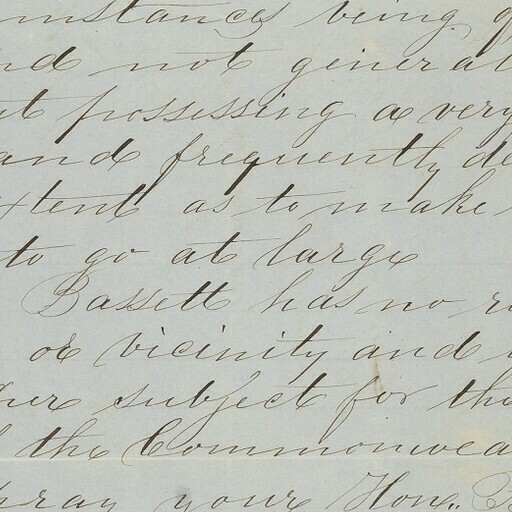 mstances being
nd not general
t possessing a very
and frequently de
xtent as to make
to go at large
Bassett has no r
or vicinity and
subject for the
the Commonwea
pray your Hon.